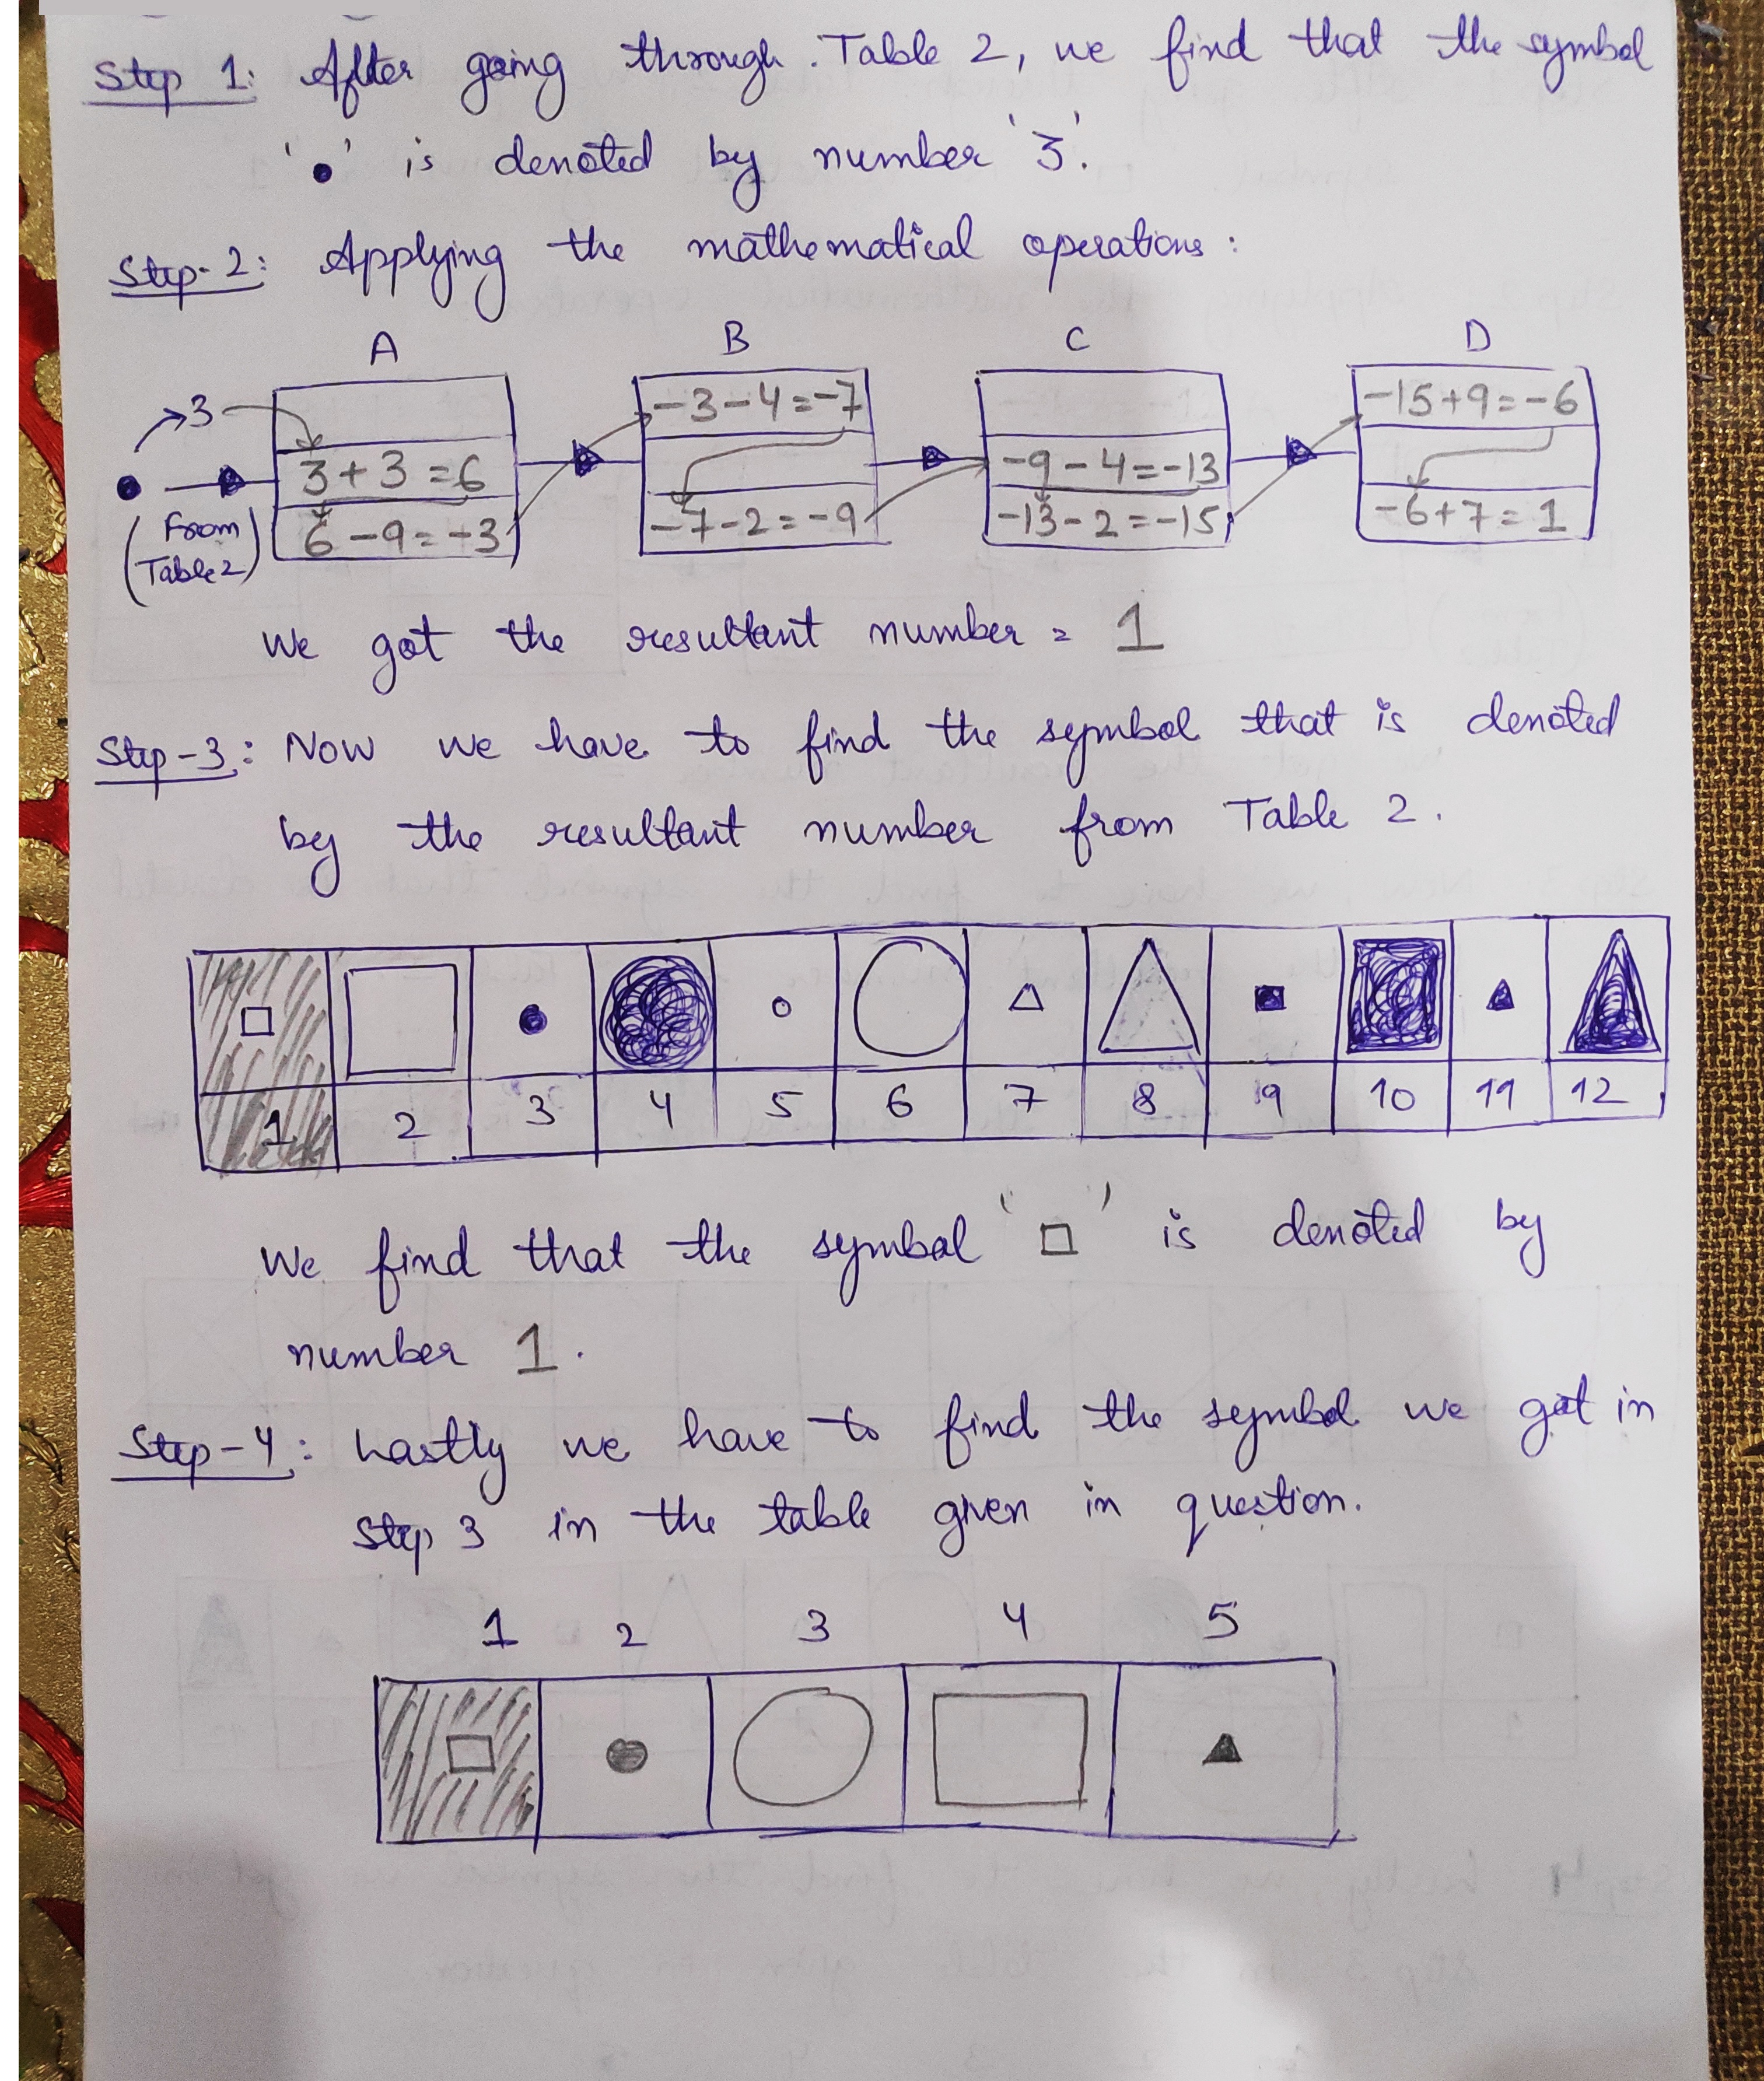 Step 1: After going through. Table 2, we find that the symbol
'●' is denoted by number '3'.
Step-2: Applying the mathematical operations:
A B C D
3
-3-4=-7
-15+9=-6
3+3=6
-9-4=-13
(From Table 2)
6-9=-3
-7-2=-9
-13-2=-15
-6+7=1
We got the resultant number = 1
Step-3: Now we have to find the symbol that is denoted
by the resultant number from Table 2.
1 2 3 4 5 6 7 8 9 10 11 12
We find that the symbol '□' is denoted by
number 1.
Step-4: Lastly we have to find the symbol we got in
step 3 in the table given in question.
1 2 3 4 5